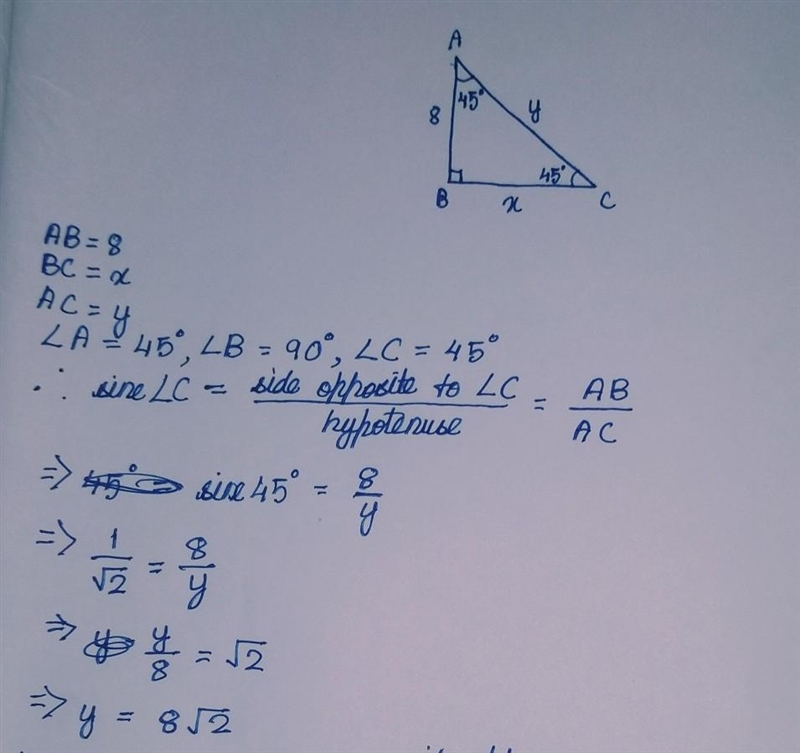 A
8
45°
y
B
45°
C
x
AB = 8
BC = x
AC = y
∠A = 45°, ∠B = 90°, ∠C = 45°
∴ sine ∠C = side opposite to ∠C / hypotenuse = AB / AC
⇒ sine 45° = 8 / y
⇒ 1 / √2 = 8 / y
⇒ y / 8 = √2
⇒ y = 8√2